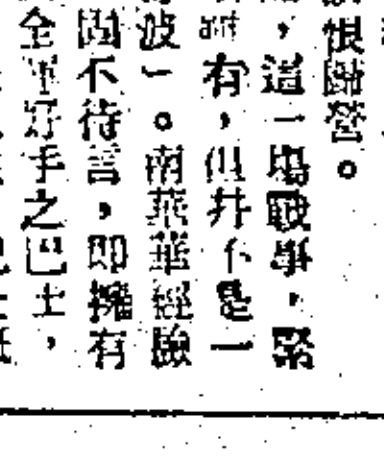 恨歸營。
，這一塲戰事，緊
有，但并不是一
波」。南華經驗
固不待言，即擁有
全軍好手之巴士，